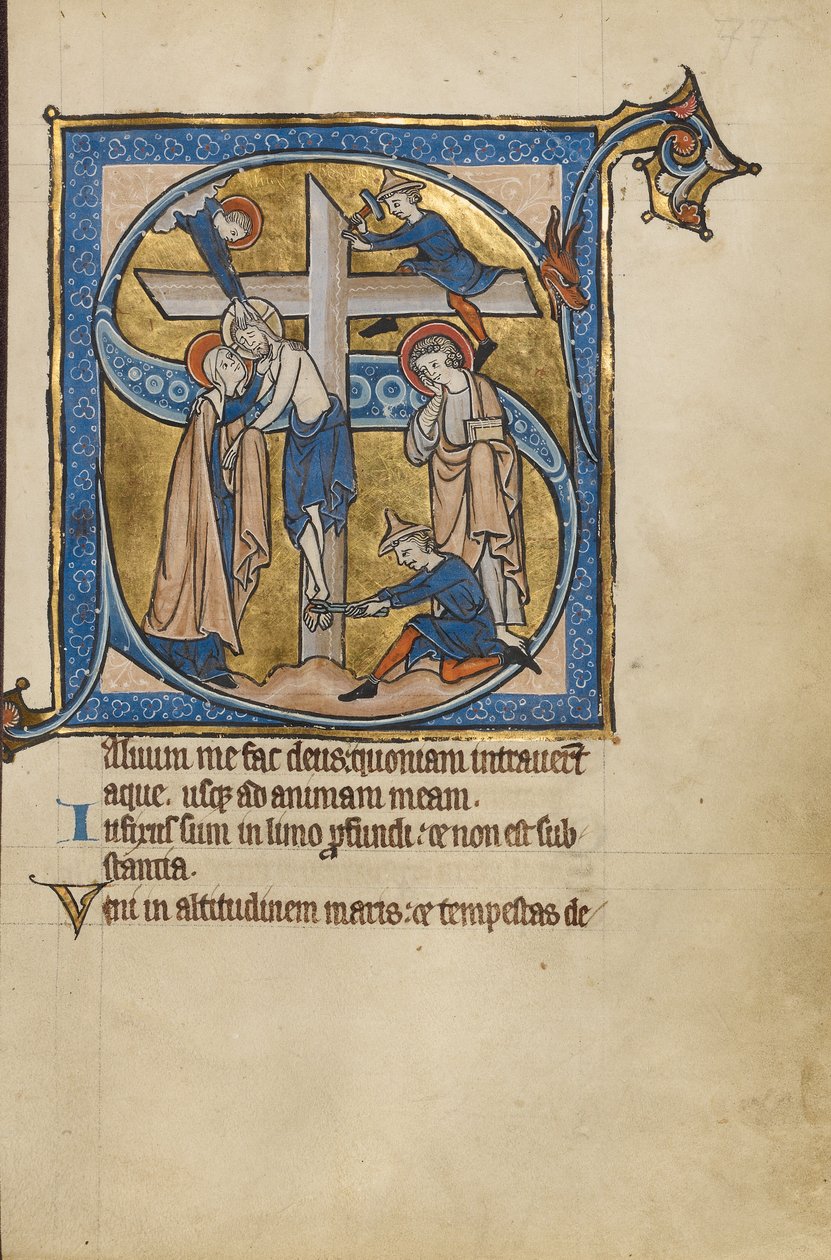 77
S
aluum me fac deus: quoniam intrauer̄t
aque. usqꝫ ad animam meam.
Infixus sum in limo ꝓfundi: ⁊ non est sub-
stantia.
Veni in altitudinem maris: ⁊ tempestas de-